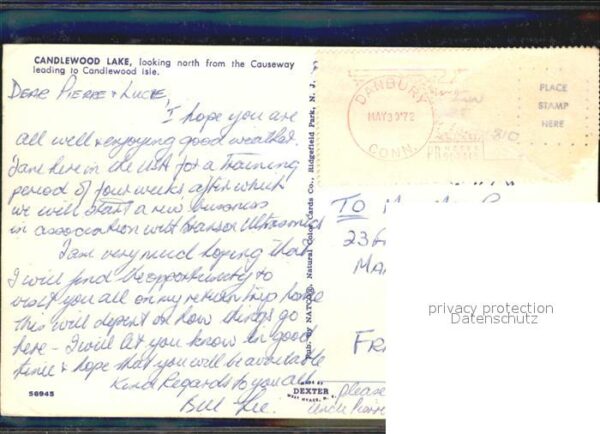 CANDLEWOOD LAKE, looking north from the Causeway
leading to Candlewood Isle.
Dear Pierre & Lucie,
I hope you are
all well & enjoying good weather.
I am here in the USA for a training
period of four weeks after which
we will start a new business
in association with Branson Ultrasonics
I am very much hoping that
I will find the opportunity to
visit you all on my return trip home
This will depend on how things go
here - I will let you know in good
time & hope that you will be available
Kind Regards to you all
Bill Lee.
50945
Pub. by NATCO, Natural Color Cards Co., Ridgefield Park, N. J.
MADE BY
DEXTER
WEST NYACK, N. Y.
DANBURY
MAY 30 '72
CONN.
PLACE
STAMP
HERE
TO
236
MA
FRA
please
privacy protection
Datenschutz